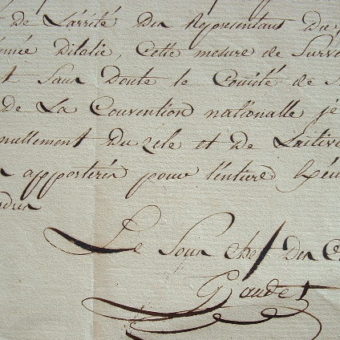 de L'arrêté Du Representant Du
d'italie, Cette mesure de Surve
t Sans Doute le Comité de S
de La Convention nationalle je
nuellement Du Zele et de L'activi
apporterés pour l'entiere Exé
Le Sous chef Du C
Gaudet